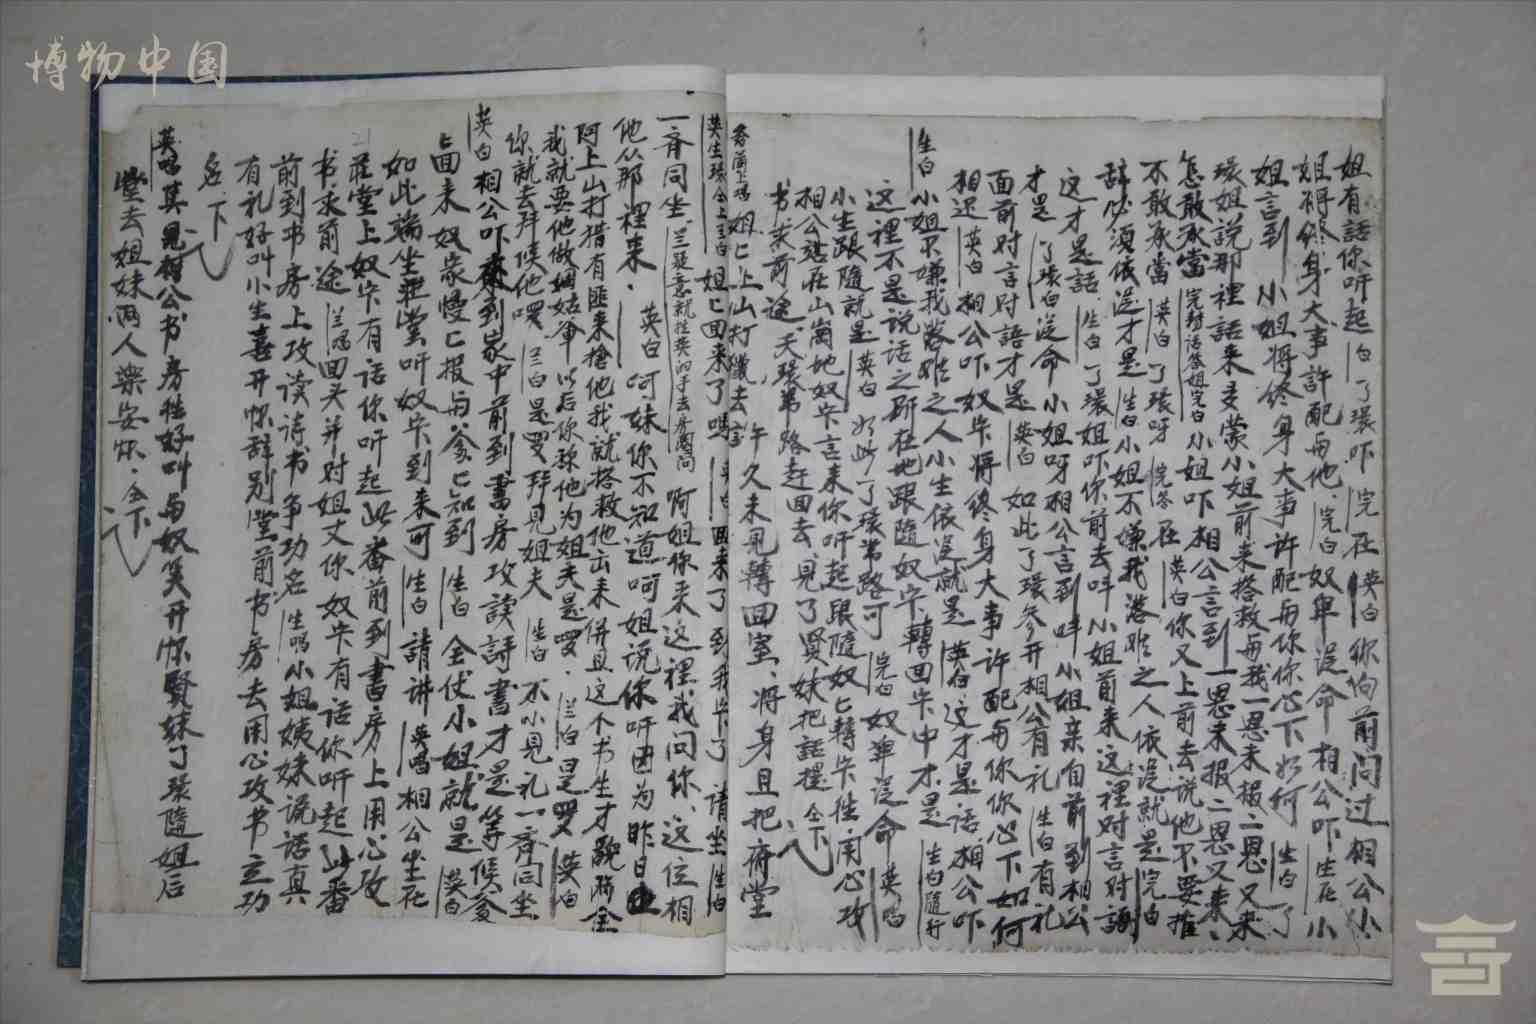 博物中国
姐有話你听起 白 了環吓 完 在 英白 你向前问过相公小
姐将终身大事許配与他 完白 奴卑没命相公吓 生在 小
姐言到 小姐将终身大事许配与你你心下如何 生白 了
環姐说那裡話来多蒙小姐前来搭救与我一恩未报二恩又来
怎敢承當 完封话答姐完白 小姐吓相公言到一恩未报二恩又来
不敢承當 英白 了環呀 完答 在 英白 你又上前去说他不要推
辞必须依没才是 生白 小姐不嫌我落难之人依没就是 完白
这才是語 生白 了環姐吓你前去叫小姐前来这裡对言对語
才是 了環白 没命小姐呀相公言到叫小姐亲自前到相公
面前对言对語才是 英白 如此了環参开相公有礼 生白 有礼
相迟 英白 相公吓奴家将终身大事许配与你你心下如何
生白 小姐不嫌我落难之人小生依没就是 英白 这才是话相公吓
这裡不是说话之所在地跟隨奴家轉回家中才是 生白隨行
小生跟隨就是 英白 如此了環带路可 完白 奴卑没命 英唱
相公落在山崗地奴家言来你听起跟隨奴家轉家徃用心攻
书末前途天環带路赶回去見了賢妹把話提 仝下
姐匕上山打獵去 許久未見轉回室将身且把府堂
英生環仝上兰白 姐匕回来了嗎 英白 回来了到我家了请坐 生白
一齐同坐 兰疑意就徃英的手去房间问 啊姐你来这裡我问你这位相
他从那裡来 英白 呵妹你不知道呵姐说你听因为昨日
阿上山打猎有匪来搶他我就搭救他出来併且这个书生才貌雙全
我就要他做姻姑爷以后你称他为姐夫是啰 兰白 是罗 英白
你就去拜候他啰 兰白 是罗拜見姐夫 生白 不小見礼一齊同坐
英白 相公吓来到家中前到書房攻读詩書才是等候爹
匕回来奴家慢匕报与爹匕知到 生白 全仗小姐就是 英白
如此端坐莊堂听奴家到来可 生白 請讲 英唱 相公坐在
莊堂上奴家有话你听起此番前到書房上用心攻
书求前途 兰唱 回头并对姐丈你奴家有话你听起此番
前到书房上攻读诗书争功名 生唱 小姐姨妹说话真
有礼好叫小生喜开怀辞别堂前书房去用心攻书立功
名 下
英唱 其見相公书房徃好叫与奴笑开怀賢妹了環隨姐后
堂去姐妹两人樂安怀 仝下